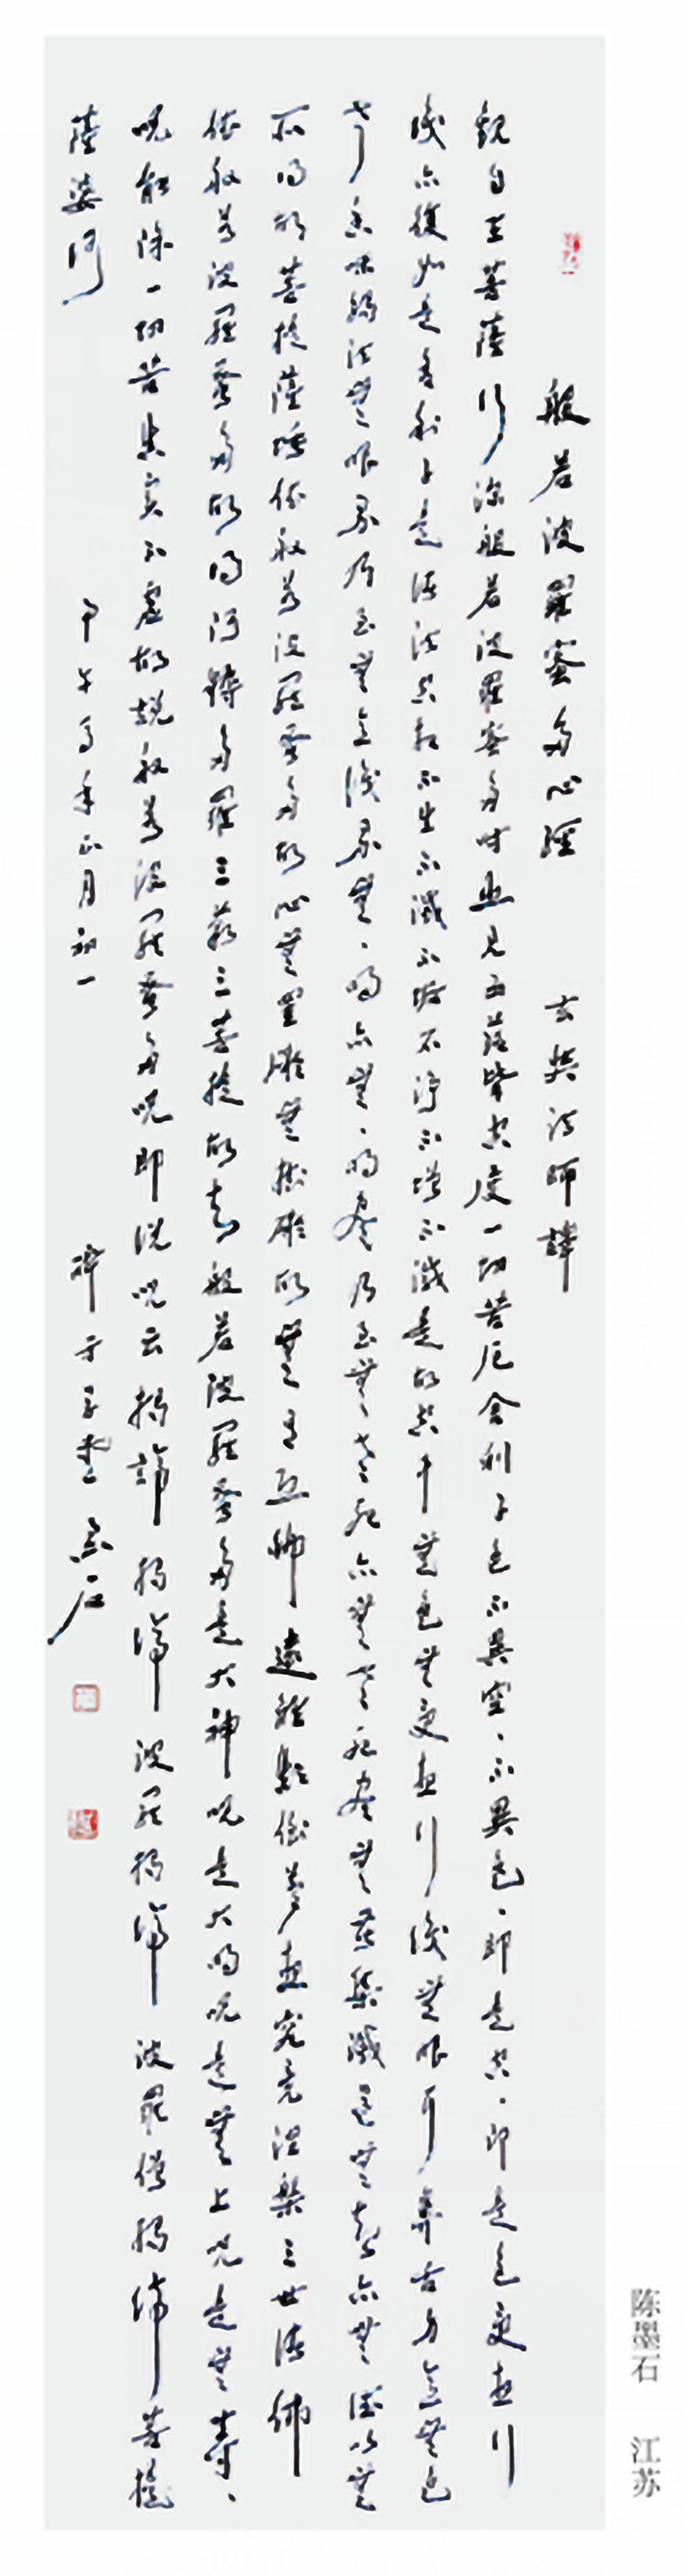 般若波羅蜜多心經 玄奘法師譯
觀自在菩薩行深般若波羅蜜多時照見五蘊皆空度一切苦厄舍利子色不異空、不異色、即是空、即是色受想行
識亦復如是舍利子是諸法空相不生不滅不垢不淨不增不減是故空中無色無受想行識無眼耳鼻舌身意無色
聲香味觸法無眼界乃至無意識界無、明亦無、明盡乃至無、老死亦無老死盡無苦集滅道無智亦無得以無
所得故菩提薩埵依般若波羅蜜多故心無罣礙無罣礙故無有恐怖遠離顛倒夢想究竟涅槃三世諸佛
依般若波羅蜜多故得阿耨多羅三藐三菩提故知般若波羅蜜多是大神咒是大明咒是無上咒是無等、
咒能除一切苦真實不虛故說般若波羅蜜多咒即說咒云揭諦 揭諦 波羅揭諦 波羅僧揭諦菩提
薩婆訶 甲午馬年正月初一 墨石
陈墨石 江苏